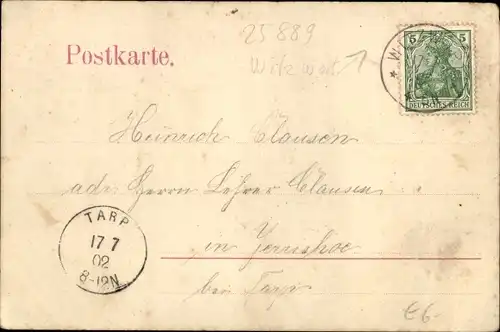 25889
Postkarte.
5 5
DEUTSCHES REICH
Heinrich Clausen
adr. Herrn Lehrer Clausen
in Jerrishoe
bei Tarp
TARP
17 7
02
8-12N
€6-